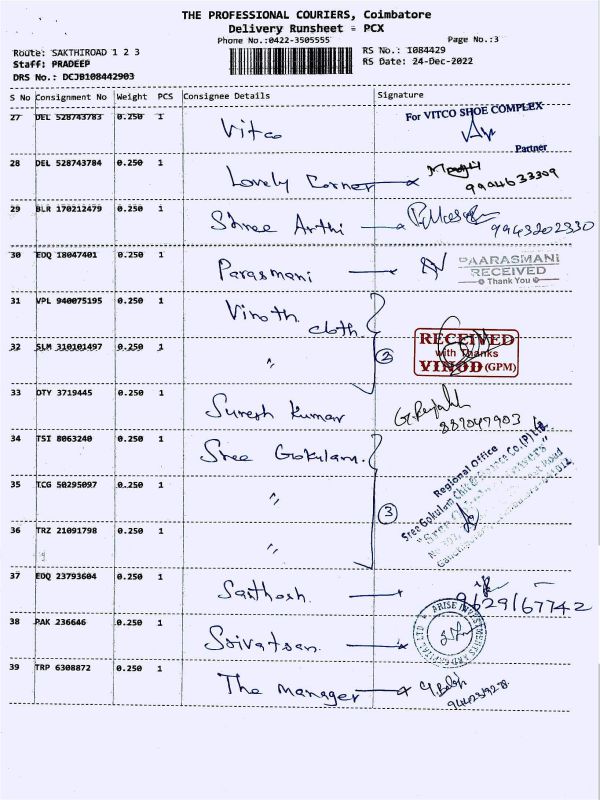 THE PROFESSIONAL COURIERS, Coimbatore
Delivery Runsheet = PCX
Phone No.:0422-3505555 Page No.:3
Route: SAKTHIROAD 1 2 3 RS No.: 1084429
Staff: PRADEEP RS Date: 24-Dec-2022
DRS No.: DCJB108442903
S No Consignment No Weight PCS Consignee Details Signature
27 DEL 528743783 0.250 1 Vitco For VITCO SHOE COMPLEX
Partner
28 DEL 528743784 0.250 1 Lovely Corner 9904633309
29 BLR 170212479 0.250 1 Shree Arthi 9943202330
30 EDQ 18047401 0.250 1 Parasmani PAARASMANI
RECEIVED
Thank You
31 VPL 940075195 0.250 1 Vinoth
cloth.
32 SLM 310101497 0.250 1 " 2 RECEIVED
with Thanks
VINOD (GPM)
33 DTY 3719445 0.250 1 Suresh Kumar
34 TSI 8063240 0.250 1 Sree Gokulam.
Regional Office
Sree Gokulam Chit & Finance Co.(P) Ltd.
35 TCG 50295097 0.250 1 " 3
36 TRZ 21091798 0.250 1 "
37 EDQ 23793604 0.250 1 Santhosh. 9629167742
38 PAK 236646 0.250 1 Srivatsan. ARISE INVESTMENTS AND CAPITAL LTD
39 TRP 6308872 0.250 1 The manager